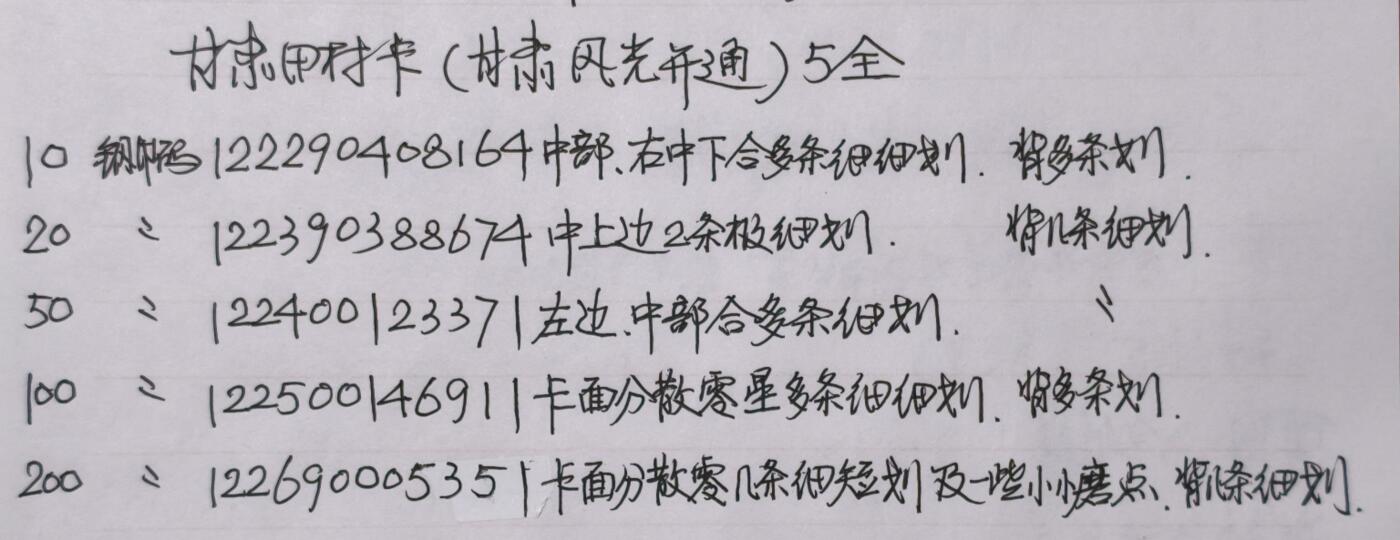 甘肃田村卡(甘肃风光开通)5全
10 钢印码 122290408164中部、右中下合多条细细划. 背多条划.
20 〃 122390388674中上边2条极细划. 背几条细划.
50 〃 122400123371左边、中部合多条细划. 〃
100 〃 122500146911卡面分散零星多条细细划. 背多条划.
200 〃 122690005351卡面分散零几条细短划及一些小小磨点、背几条细划.